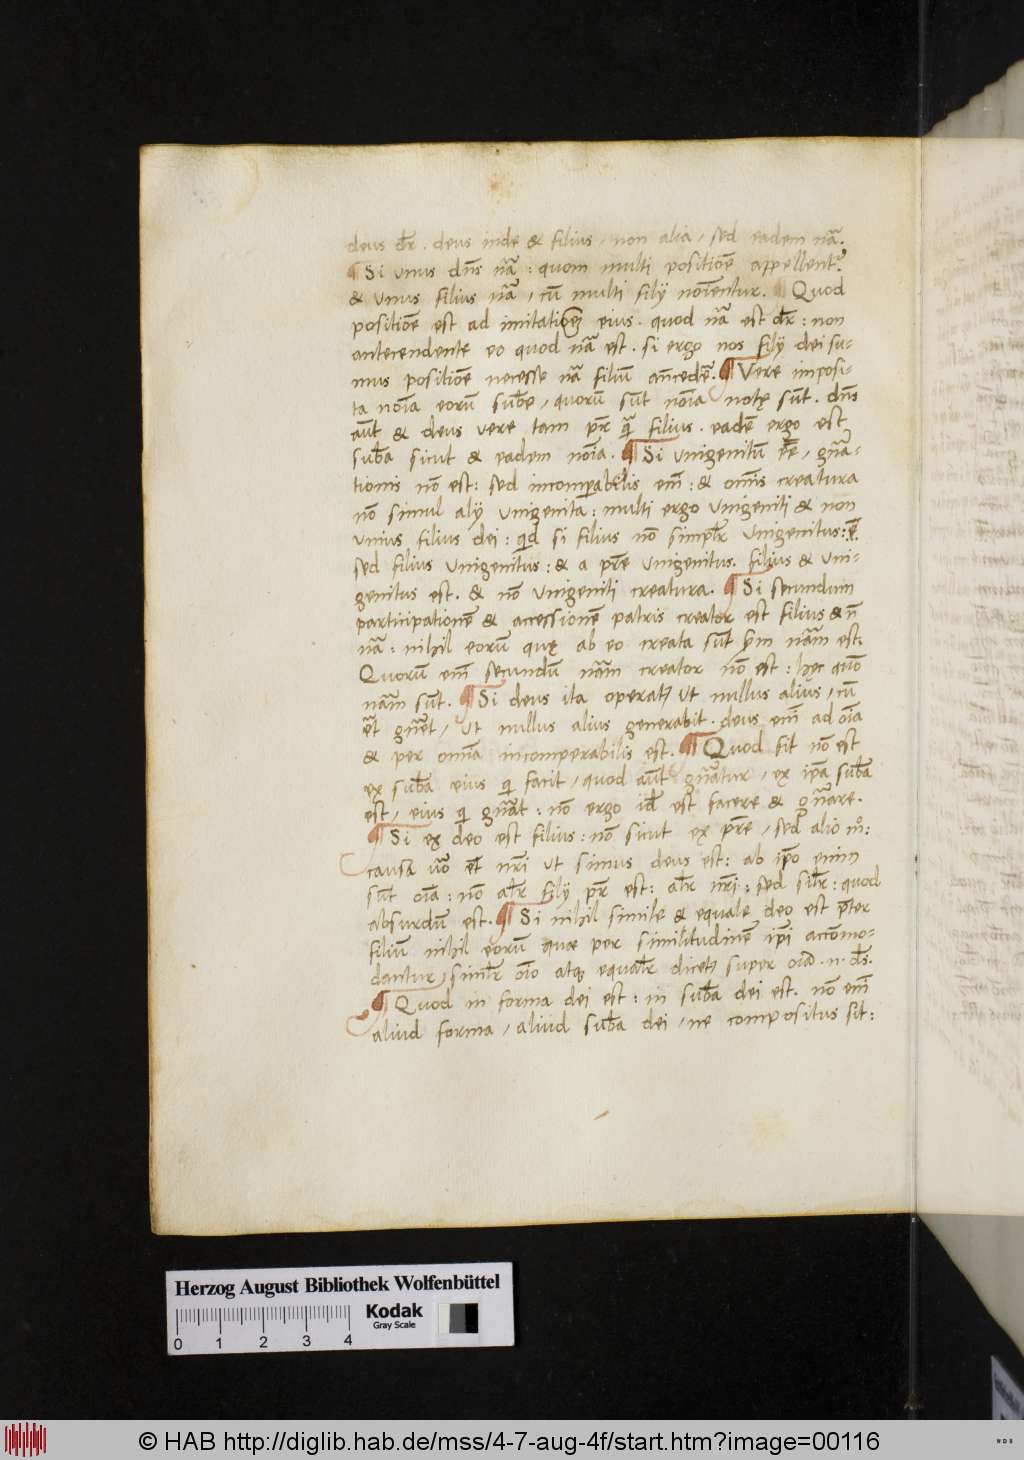 deus dr̄ . deus inde & filius / non alia / sed eadem nā.
¶ Si unus dn̄s nā : quom multi positiōe appellent᷑
& unus filius nā / cū multi filij noīentur. Quod
positiōe est ad imitatiōem eius . quod nā est dr̄ : non
antecendente eo quod nā est . si ergo nos filij dei su-
mus positiōe necesse nā filiū an̄cedē. ¶ Vere imposi-
ta noīa eorū subē / quorū sūt noīa notę sūt . dn̄s
aūt & deus vere tam pr̄ q̄ filius . eadē ergo est
subā sicut & eadem noīa . ¶ Si unigenitū ēē / gn̄a-
tionis nō est : sed incomparabilis em̄ : & omīs creatura
nō simul alij unigenita : multi ergo unigeniti & non
unius filius dei : qd si filius nō simplr̄ unigenitus : ē
sed filius unigenitus : & a prē unigenitus . filius & uni-
genitus est . & nō unigeniti creatura . ¶ Si secundum
participationē & accessionē patris creator est filius & n̄
nā : nihil eorū quę ab eo creata sūt sm nām est .
Quorū em̄ secundū nām creator nō est : hęc quō
nām sūt . ¶ Si deus ita operat᷑ ut nullus alius / cū
ēt gn̄et / ut nullus alius generabit . deus em̄ ad oīa
& per omnia incomperabilis est . ¶ Quod fit nō est
ex subā eius qi facit / quod aūt gn̄atur / ex ipā subā
est / eius qi gn̄at : nō ergo id est facere & gn̄are .
¶ Si ex deo est filius : nō sicut ex prē / sed alio mº :
causa uō ēt nr̄i ut simus deus est : ab ipō enim
sūt oīa : nō alr̄ filij pr̄ est : alr̄ nr̄i : sed silr̄ : quod
absurdū est . ¶ Si nihil simile & equale deo est pter
filiū nihil eorū quae per similitudinē ipi accōmo-
dantur / similr̄ oīo atq equalr̄ dicet᷑ super oīa . n . ds .
¶ Quod in forma dei est : in subā dei est . nō em̄
aliud forma / aliud subā dei / ne compositus sit :
Herzog August Bibliothek Wolfenbüttel
Kodak
Gray Scale
0 1 2 3 4
© HAB http://diglib.hab.de/mss/4-7-aug-4f/start.htm?image=00116